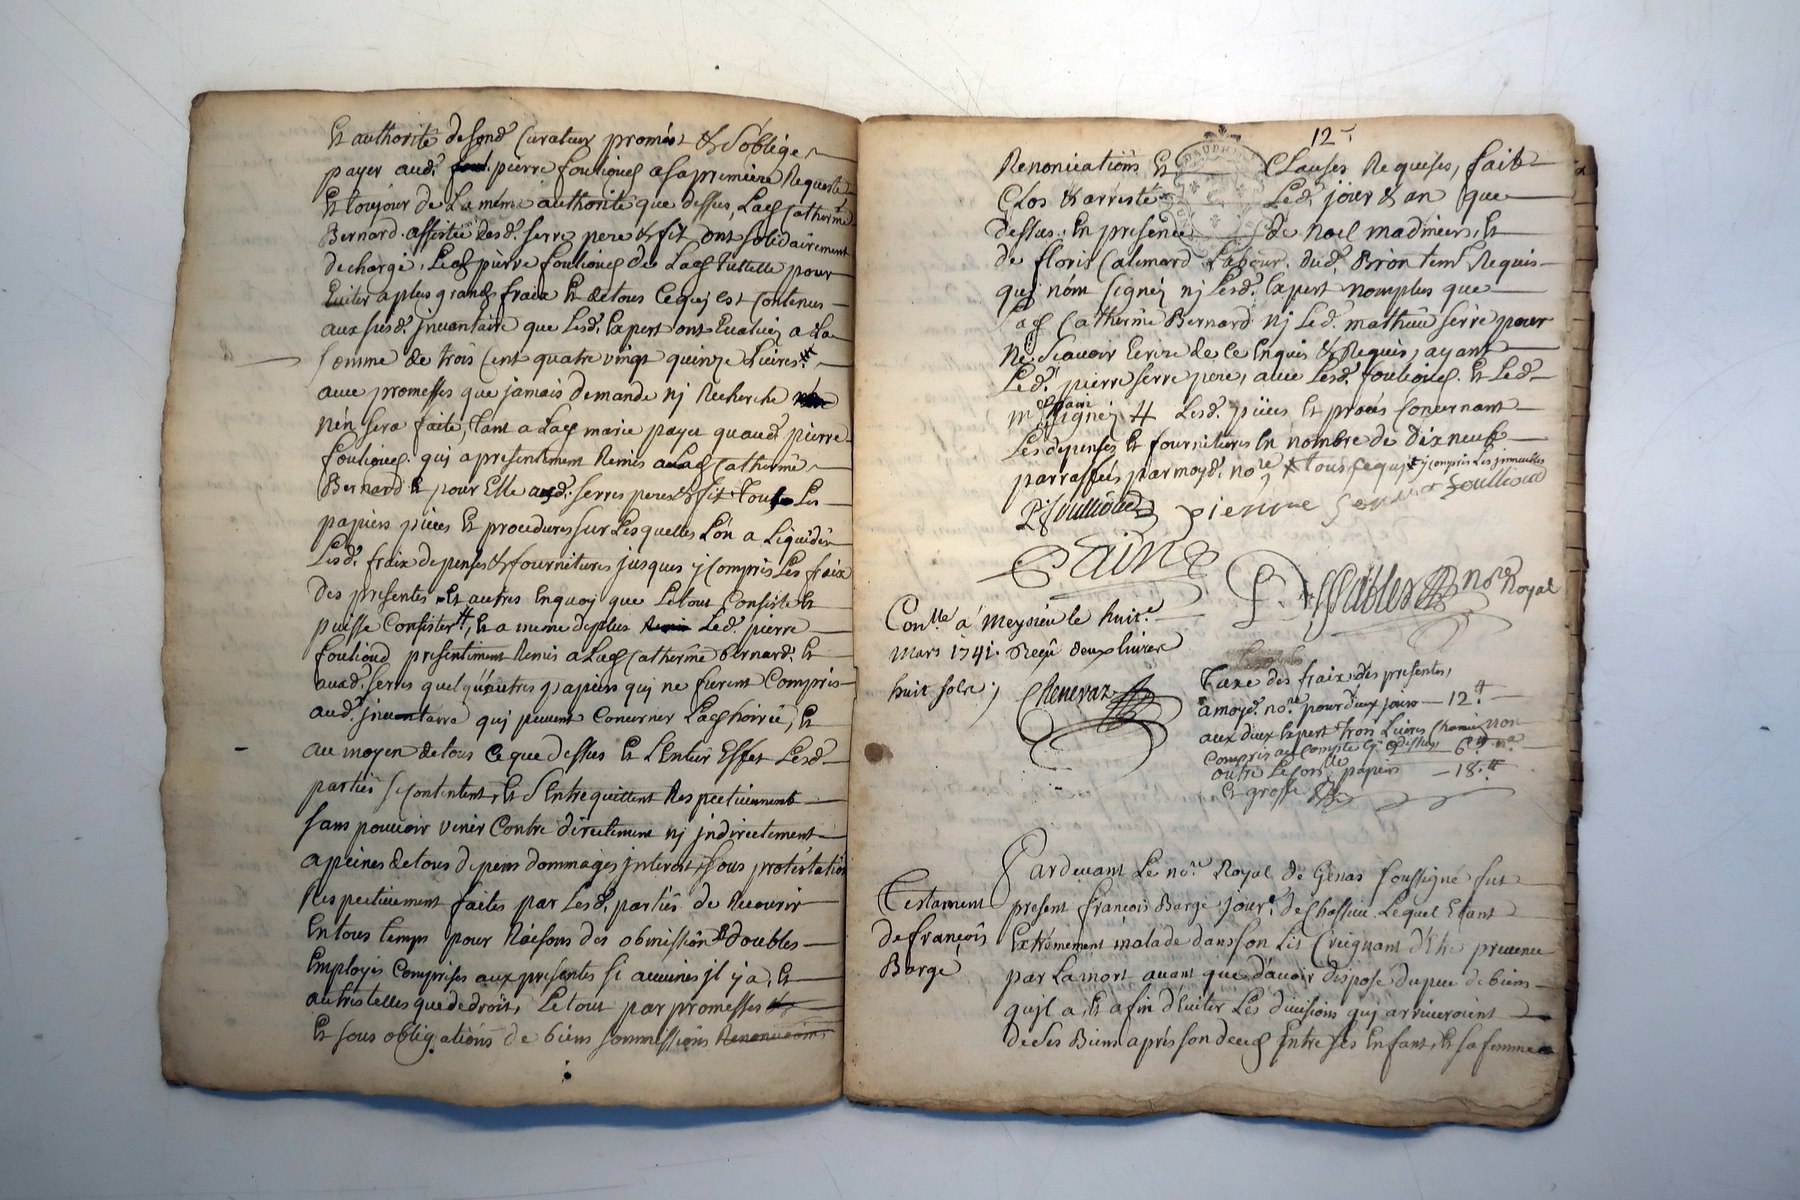 Et authorité de sond. Curateur promét & s'oblige
payer aud. pierre foulioud a sa premiere Requeste
Et toujour de La méme authorité que dessus, Lad. Catherine
Bernard assistée desd. serre pere & fil ont solidairement
dechargé, Led. pierre foulioud de Lad. tuttelle pour
Eviter a plus grands fraix Et de tous Ce quj est Contenus
aux susd. jnventaire que Lesd. Expert ont Evaluéz a La
somme de trois Cent quatre vingt quinze Livres
avec promesses que jamais demande nj Recherche
n'én sera faite, tant a Lad. marie payet qu'aud. pierre
foulioud quj a presentement Remis a Lad. Catherine
Bernard & pour Elle aud. serres peres & fil toutes Les
papiers piéces Et procedures sur Lesquelles L'on a Liquidér
Lesd. fraix depenses & fournitures jusques y Compris Les fraix
des presentes Et autres En quoy que Le tout Consiste Et
puisse Consister, Et a meme de plus Led. pierre
foulioud presentement Remis a Lad. Catherine Bernard Et
auxd. serres quelqu'autres papiers quj ne furent Compris
aud. jnventaire quj peuvent Concerner Lad. hoirie, Et
au moyen de tous Ce que dessus Et L'Entier Effet Lesd.
parties se Contentent, Et s'Entrequittent Respectivement
sans pouvoir venir Contre directement nj jndirectement
a peines de tous depens dommages jnterest, sous protestation
Respectivement faites par Lesd. parties de Recourir
En tous temps pour Raisons des obmissions & doubles
Employés Comprises aux presentes si aucunes jl y a, Et
autres telles que de droit, Le tout par promesses
Et sous obligations de biens soumissions Renonciations
12
Renonciations Et Clauses Requises, fait
Clos & arresté Led. jour & an que
dessus, En presence de Noel madinier, Et
de floris Calimard Labour. dud. Bron tem. Requis
quj n'ont signéz nj Lesd. Expert nomplus que
Lad. Catherine Bernard nj Led. mathieu serre pour
ne sçavoir Ecrire de ce Enquis & Requis, ayant
Led. pierre serre pere, avec Lesd. foulioud Et Led.
m. pain signéz # Lesd. piéces Et procés Concernant
Les depenses Et fournitures En nombre de dix neuf
parraffées par moyd. no.re # tous ce quj y compris Les jmmeubles
P foullioud pierre serre foullioud
Pain
P. Dessables no.re Royal
Con.llé á Meysieu le huit.e
Mars 1741. Reçû deux livres
huit sols, Chenevaz
Taxe des fraix des presentes,
a moyd. no.re pour deux jours — 12.#
aux deux Expert trois Livres Chacun non
compris — 6.#
outre Le Con.lle papiers — 18.#
Et grosse
Testament
de françois
Barge
Pardevant Le no.re Royal de Genas soussigné fut
present françois Barge jour.r de Chassieu Lequel Etant
Extremement malade dans son Lit Creignant d'Etre prevenu
par La mort avant que d'avoir disposé du peu de biens
qu'jl a, Et afin d'Eviter Les divisions quj arriveroient
de ses Biens aprés son decés Entre ses Enfant, Et sa femme